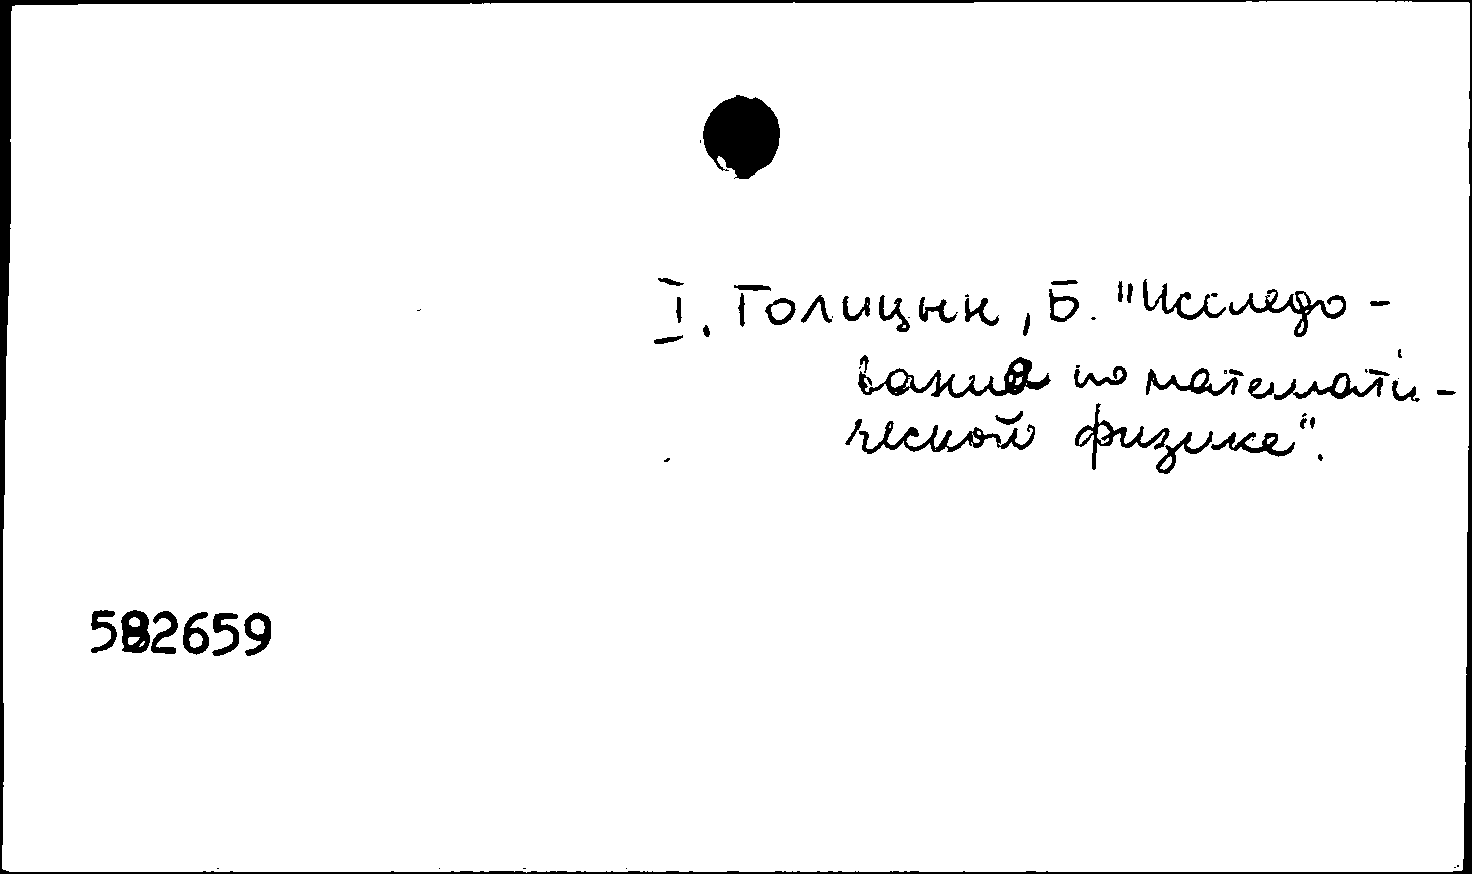 I. Голицын, Б. "Исследо-
вания по математи-
ческой физике".
582659